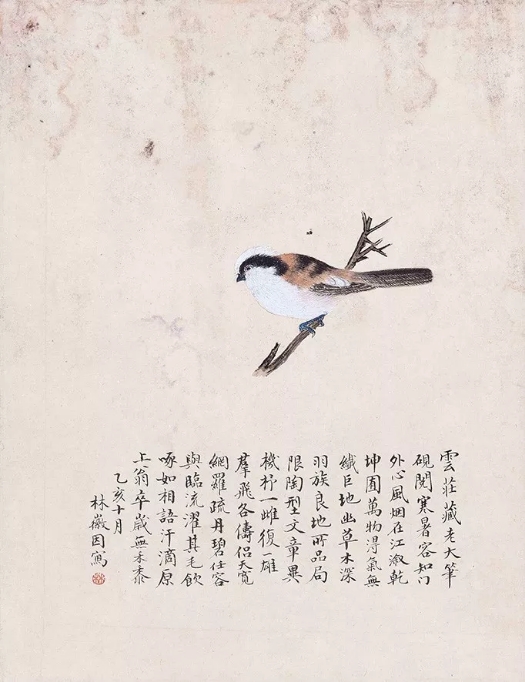 雲莊藏老大筆
硯閱寒暑容知门
外心風烟在江淑乾
坤圓萬物浔氣無
纖巨地幽草木深
羽族良地所品局
限陶型文章異
機杼一雌復一雄
羣飛各儔侣天寬
網羅疏丹碧任容
與臨流濯其毛飲
啄如相語汗滴原
上翁卒歲無禾黍
乙亥十月
林徽因寫